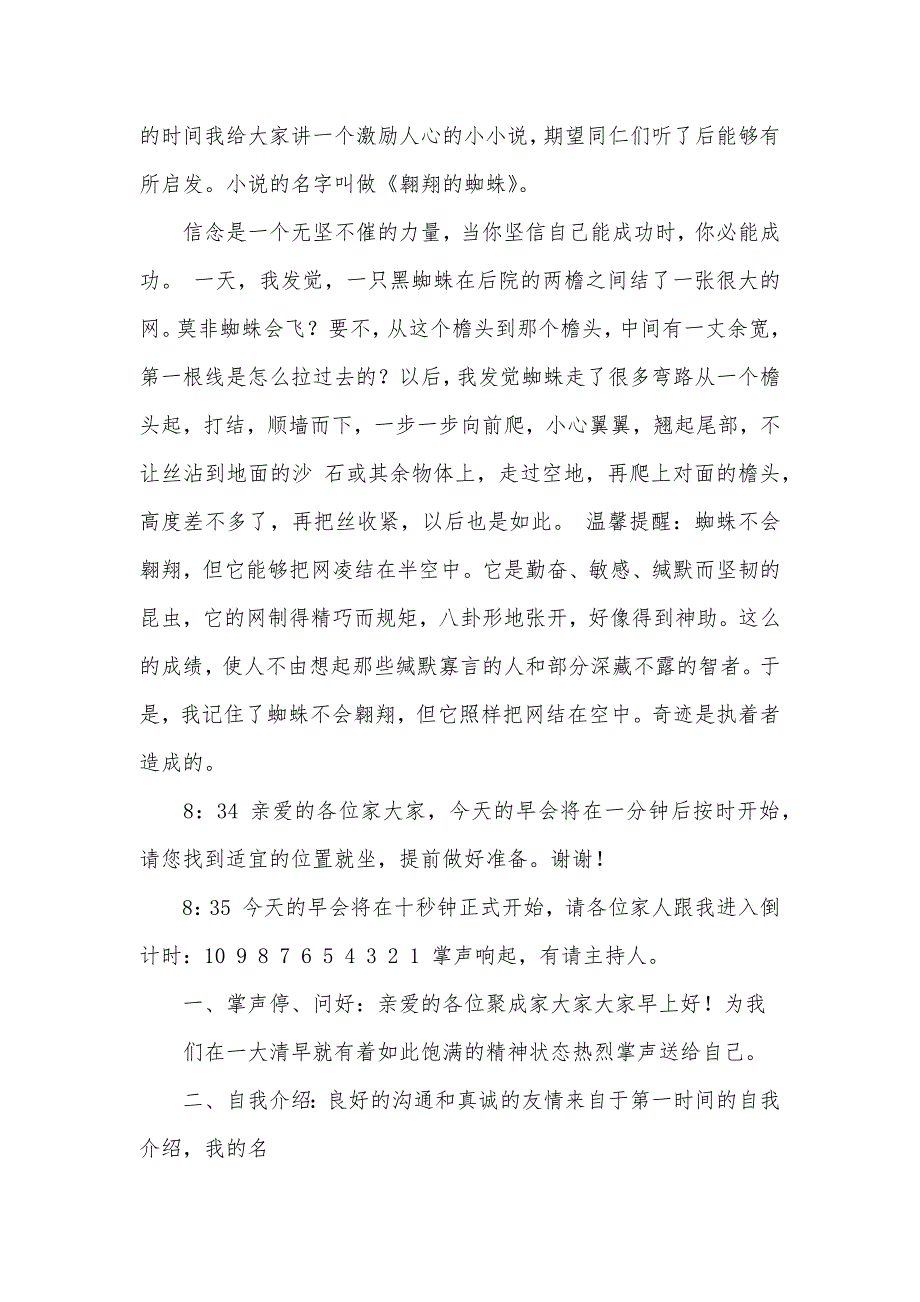 的时间我给大家讲一个激励人心的小小说，期望同仁们听了后能够有
所启发。小说的名字叫做《翱翔的蜘蛛》。
信念是一个无坚不催的力量，当你坚信自己能成功时，你必能成
功。 一天，我发觉，一只黑蜘蛛在后院的两檐之间结了一张很大的
网。莫非蜘蛛会飞？要不，从这个檐头到那个檐头，中间有一丈余宽，
第一根线是怎么拉过去的？以后，我发觉蜘蛛走了很多弯路从一个檐
头起，打结，顺墙而下，一步一步向前爬，小心翼翼，翘起尾部，不
让丝沾到地面的沙 石或其余物体上，走过空地，再爬上对面的檐头，
高度差不多了，再把丝收紧，以后也是如此。 温馨提醒：蜘蛛不会
翱翔，但它能够把网凌结在半空中。它是勤奋、敏感、缄默而坚韧的
昆虫，它的网制得精巧而规矩，八卦形地张开，好像得到神助。这么
的成绩，使人不由想起那些缄默寡言的人和部分深藏不露的智者。于
是，我记住了蜘蛛不会翱翔，但它照样把网结在空中。奇迹是执着者
造成的。
8：34 亲爱的各位家大家，今天的早会将在一分钟后按时开始，
请您找到适宜的位置就坐，提前做好准备。谢谢！
8：35 今天的早会将在十秒钟正式开始，请各位家人跟我进入倒
计时：10 9 8 7 6 5 4 3 2 1 掌声响起，有请主持人。
一、掌声停、问好：亲爱的各位聚成家大家大家早上好！为我
们在一大清早就有着如此饱满的精神状态热烈掌声送给自己。
二、自我介绍：良好的沟通和真诚的友情来自于第一时间的自我
介绍，我的名